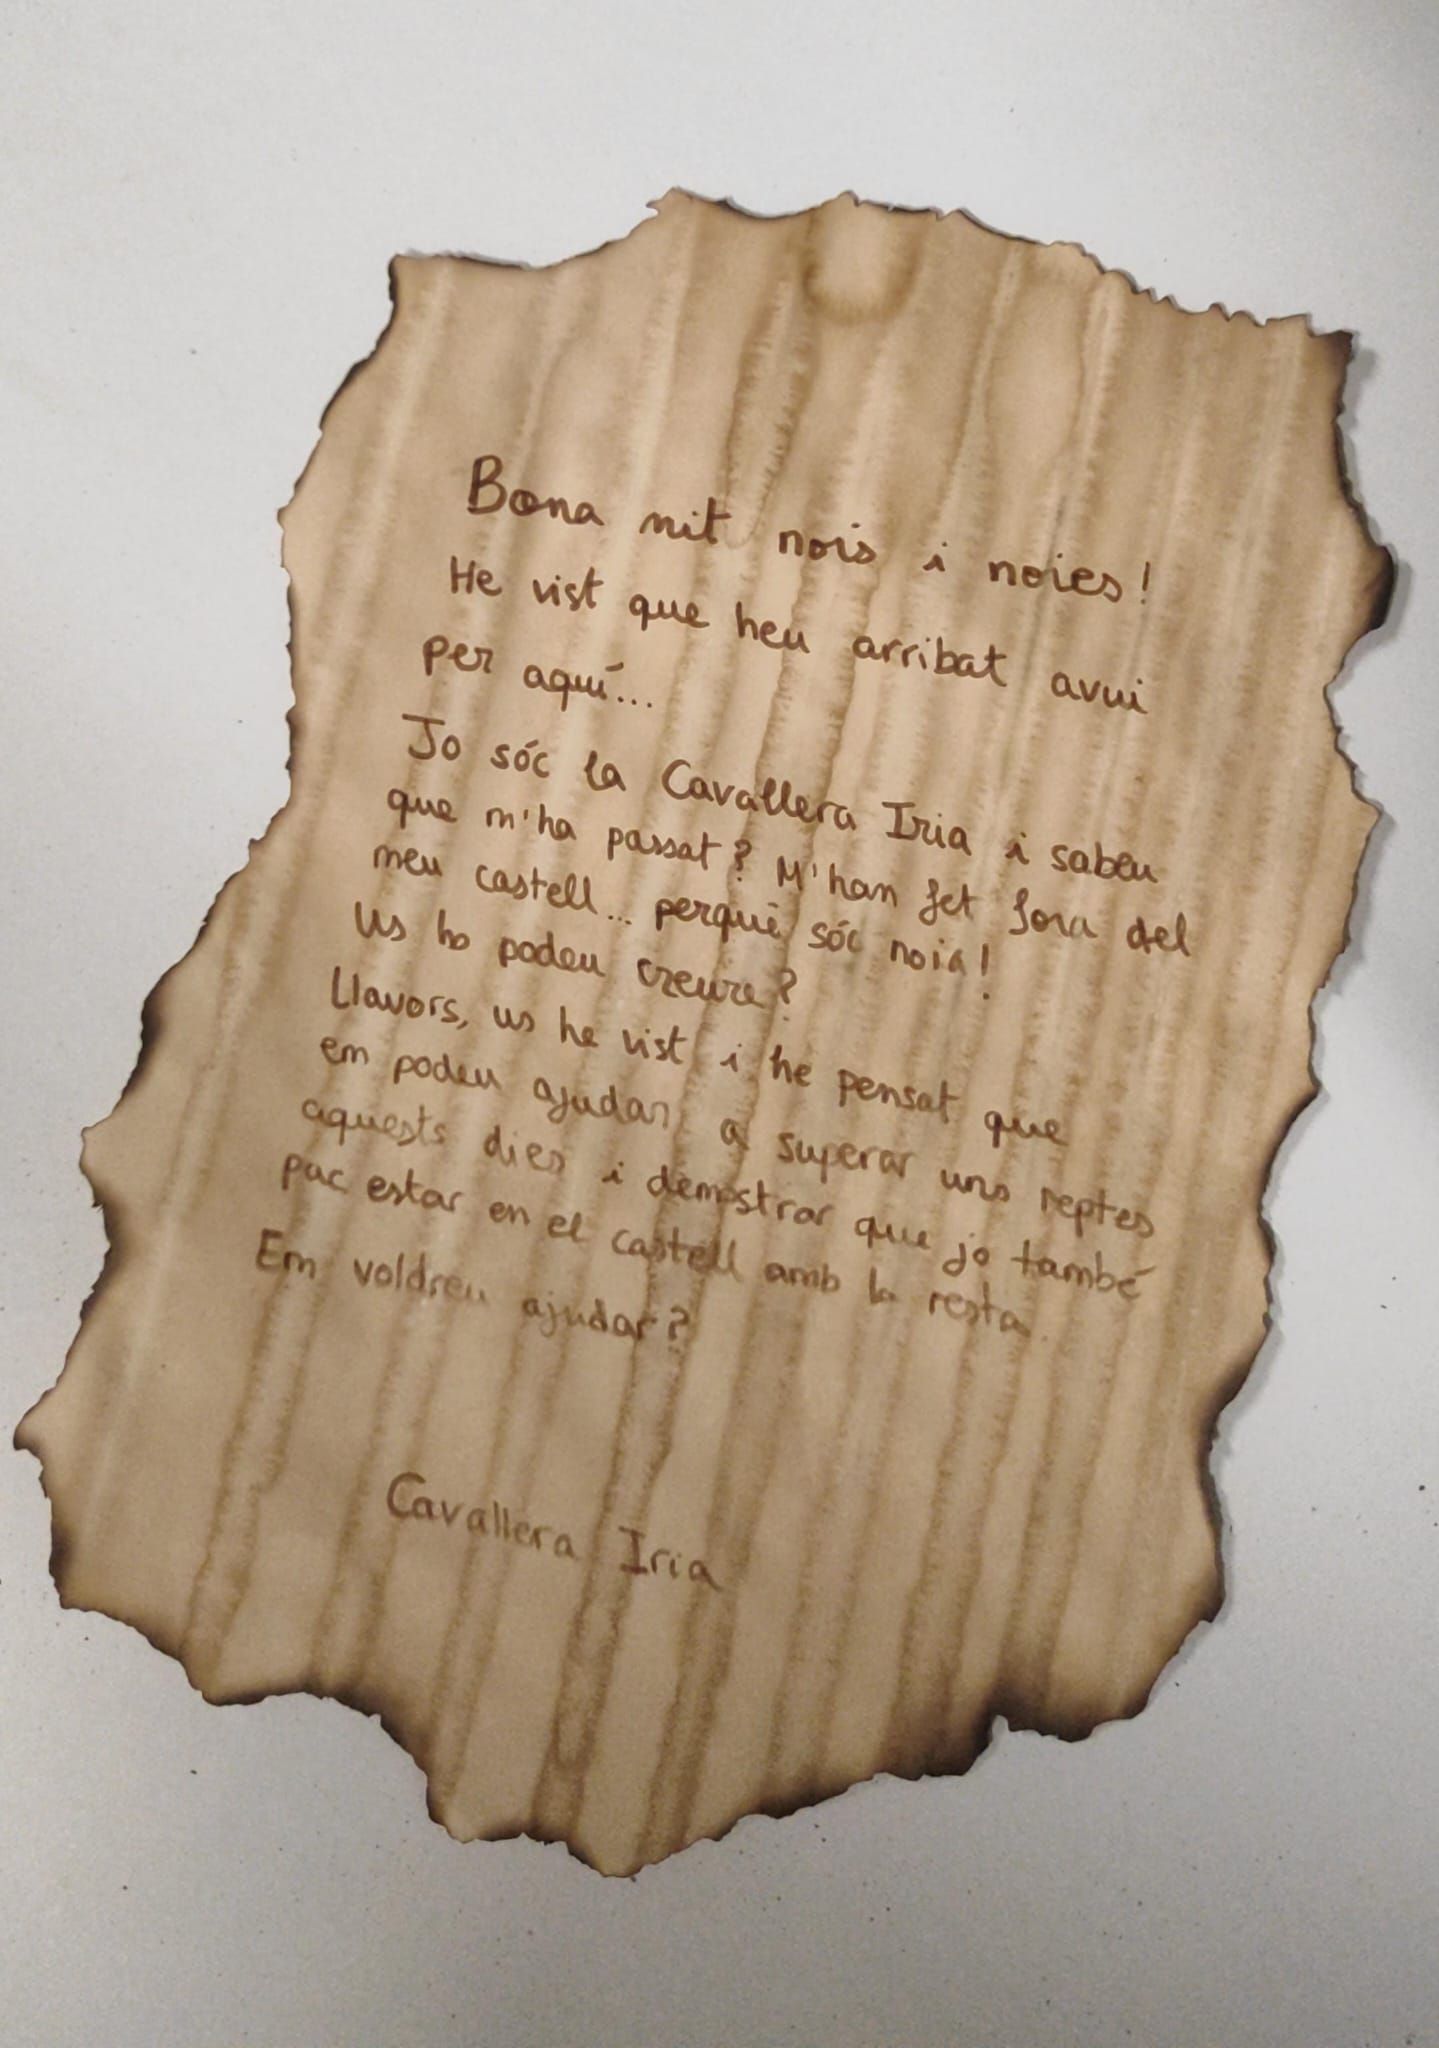 Bona nit nois i noies!
He vist que heu arribat avui
per aquí...
Jo sóc la Cavallera Iria i sabeu
que m'ha passat? M'han fet fora del
meu castell... perquè sóc noia!
Us ho podeu creure?
Llavors, us he vist i he pensat que
em podeu ajudar a superar uns reptes
aquests dies i demostrar que jo també
puc estar en el castell amb la resta.
Em voldreu ajudar?
Cavallera Iria